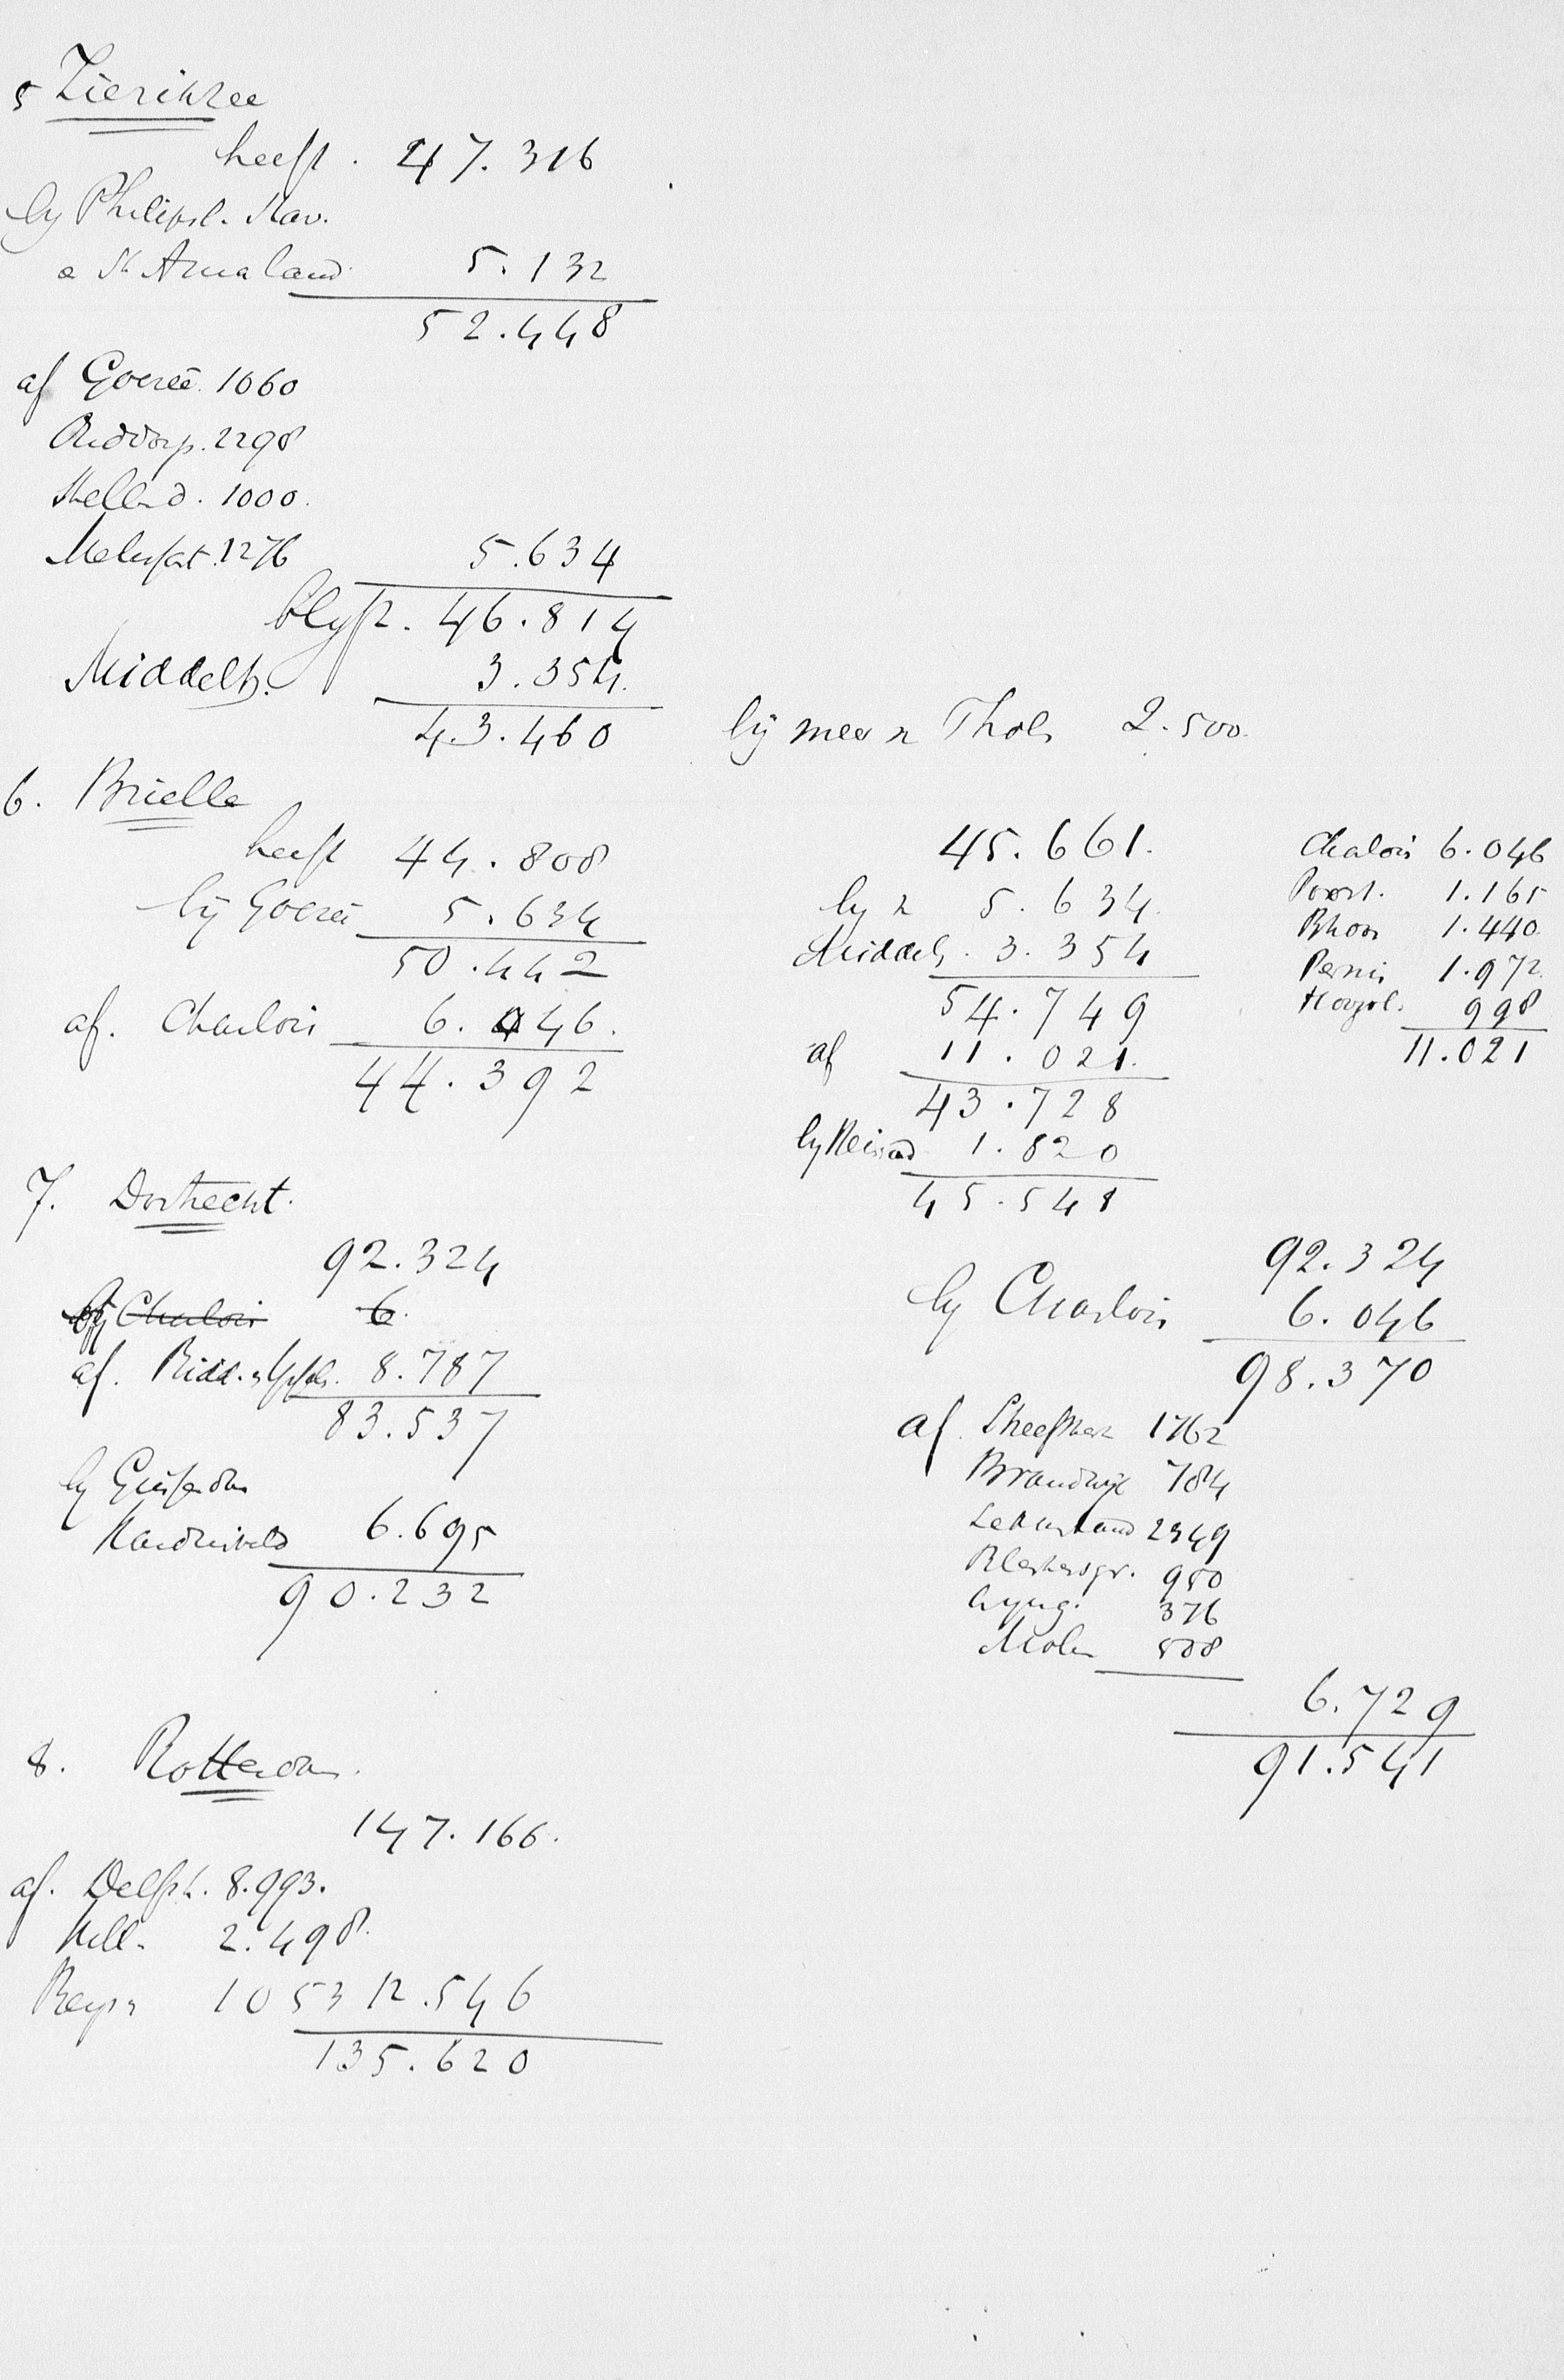 5 Zierikzee
heeft . 47.316
by Philipsl. Nav.
a St Annaland 5.132
52.448
af Goereê 1060
Ouddorp. 2298
Stellend. 1000.
Melissat. 1276 5.634
blyft. 46.814
Middelh. 3.354.
43.460
by mee n Thol. 2.500.
6. Brielle
heeft 44.808
by Goeree 5.634
50.442
af. Charlois 6.046.
44.392
45.661.
by n 5.634.
Middelh. 3.354
54.749
af 11.021.
43.728
by 1.820
45.548
Chalois 6.046
Poort. 1.165
Rhoon 1.440.
Pernis 1.972.
Hoogvl. 998
11.021
7. Dortrecht.
92.324
by Charlois 6.
af. Ridd. n 8.787
83.537
by Giessendam
Hardinxveld 6.695
90.232
92.324
by Charlois 6.046
98.370
af. 1762
Brandwijk 784
Lekkerland 2349
Bleskensgr. 950
Wijng. 376
Molen 508
6.729
91.541
8. Rotterdam.
147.166.
af. Delfsh. 8.993.
Hill. 2.498.
1053 12.546
135.620